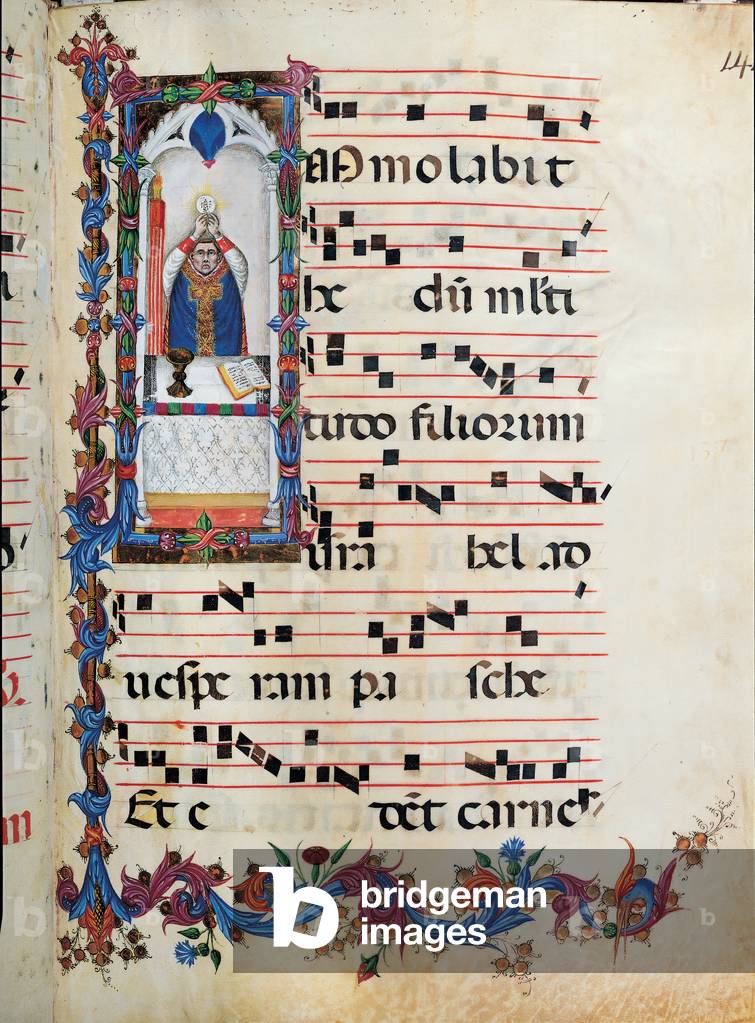 14
IMmolabit
he dū mlti
tudo filiorum
isra hel ad
uespe ram pa sche
Et e dēt carnes
b bridgeman
images